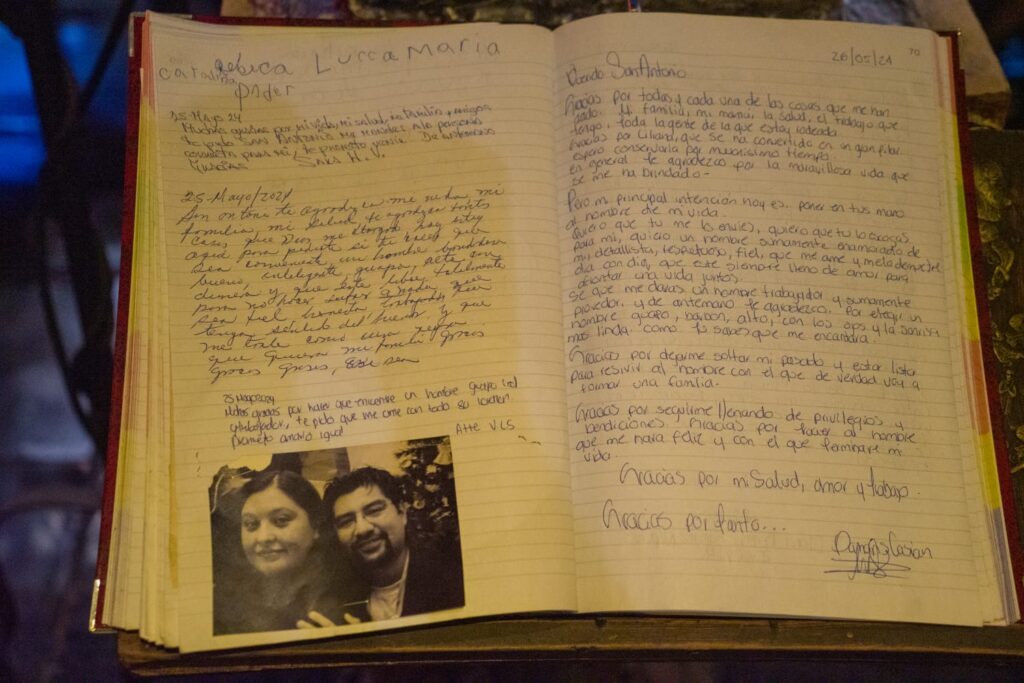 Rebeca Lucca Maria
Catalina
Pider
25 Mayo 24
Muchas gracias por mi vida, mi salud, mi familia y amigos
Te pido San Antonio me mandes a la persona
correcta para mi, te prometo
Gracias
25-Mayo/2024
San Antonio te agradezco me
familia, mi salud, te agradezco tantas
cosas que Dios me otorga, hoy estoy
aqui para pedirte si tu crees que
sea conveniente un hombre bondadoso
bueno, inteligente, guapo, alto, con
dinero y que este libre totalmente
para no hacer sufrir a nadie, que
sea fiel, honesto, trabajador, que
tenga sentido del humor, y que
me trate como una reina
que quiera mi familia Gracias
Gracias Gracias,
25 Mayo 2024
gracias por hacer que encuentre un hombre guapo
trabajador, te pido que me ame con todo su corazon
Prometo amarlo igual
Atte VLS
26/05/24
Querido San Antonio
Gracias por todas y cada una de las cosas que me han
dado. Mi familia, mi mamá, la salud, el trabajo que
tengo, toda la gente de la que estoy rodeada.
Gracias por Liliana, que se ha convertido en un gran pilar
espero conservarla por muchisimo tiempo.
en general te agradezco por la maravillosa vida que
se me ha brindado.-
Pero mi principal intención hoy es, poner en tus manos
al hombre de mi vida.
Quiero que tu me lo envies, quiero que tu lo escojas
para mi, quiero un hombre sumamente enamorado de
mi, detallista, respetuoso, fiel, que me ame y me lo demuestre
día con día, que este siempre lleno de amor para
disfrutar una vida juntos.
Sé que me darás un hombre trabajador y sumamente
proveedor, y de antemano te agradezco. Por elegir un
hombre guapo, barbon, alto, con los ojos y la sonrisa
más linda, como tu sabes que me encantra.
Gracias por dejarme soltar mi pasado y estar lista
para resivir al hombre con el que de verdad voy a
formar una familia.
Gracias por seguirme llenando de privilegios y
bendiciones. Gracias por traer al hombre
que me hara feliz y con el que formare mi
vida.
Gracias por mi Salud, amor y trabajo.
Gracias por tanto...